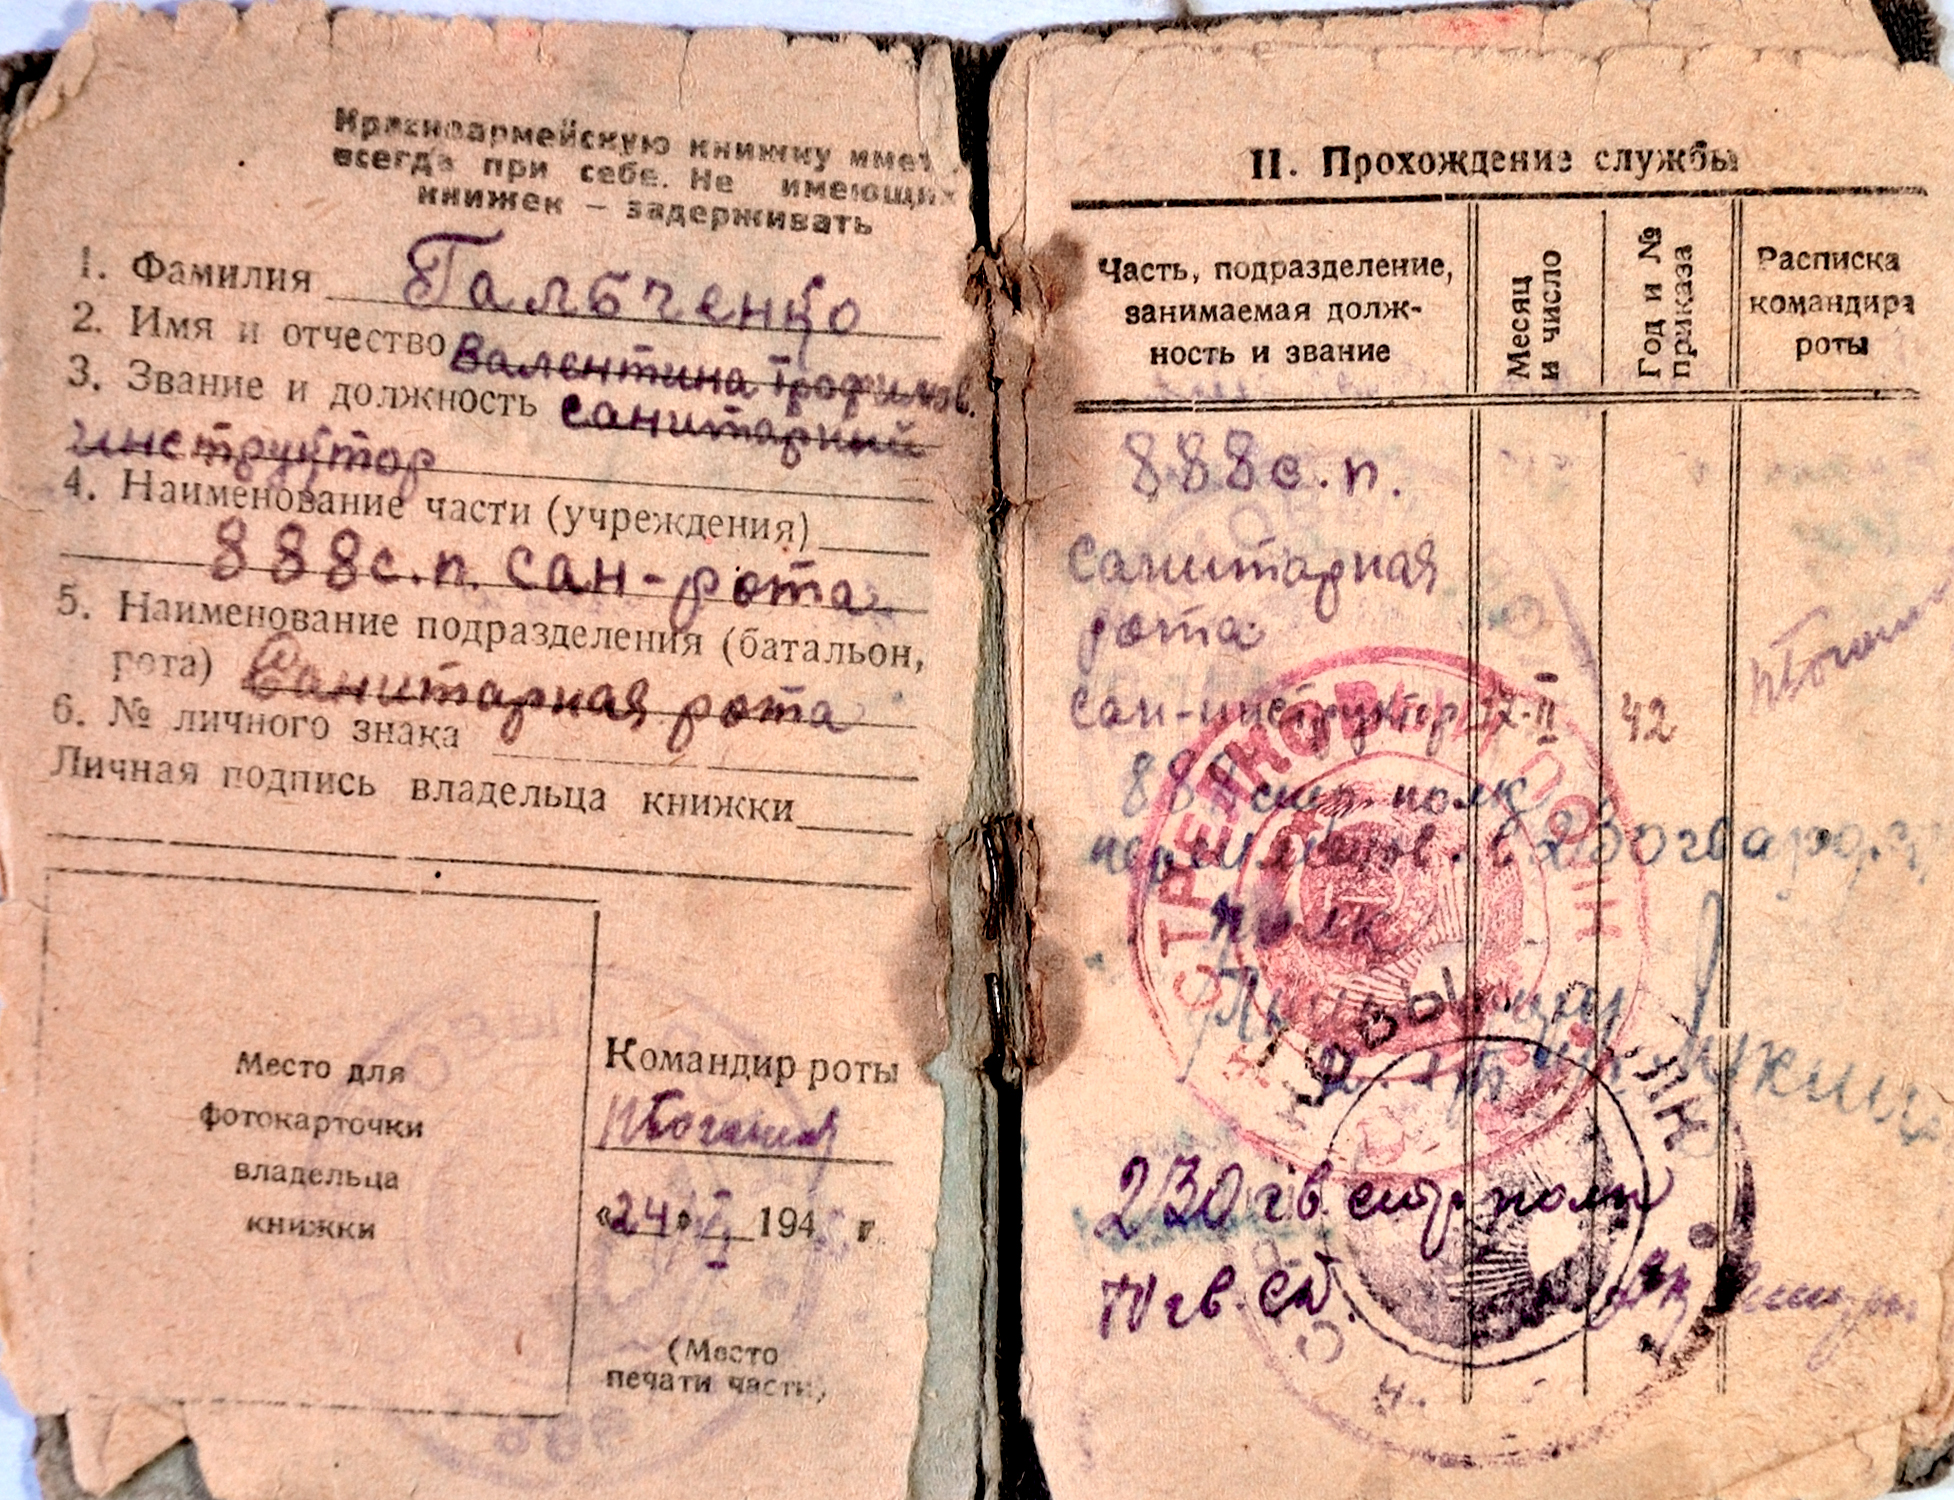 Красноармейскую книжку иметь
всегда при себе. Не имеющих
книжек — задерживать
1. Фамилия Гальченко
2. Имя и отчество Валентина Трофимов.
3. Звание и должность санитарный
инструктор
4. Наименование части (учреждения)
888 с.п. сан-рота
5. Наименование подразделения (батальон,
рота) Санитарная рота
6. № личного знака
Личная подпись владельца книжки
Место для
фотокарточки
владельца
книжки
Командир роты
«24» 194 г.
(Место
печати части)
II. Прохождение службы
Часть, подразделение,
занимаемая долж-
ность и звание
Месяц
и число
Год и №
приказа
Расписка
командира
роты
888 с.п.
санитарная
рота
сан-инструктор 17-II 42
888 стр. полк
в 230 гвард.
полк
230 гв. стр. полк
гв.
СТРЕЛКОВ ПОЛК